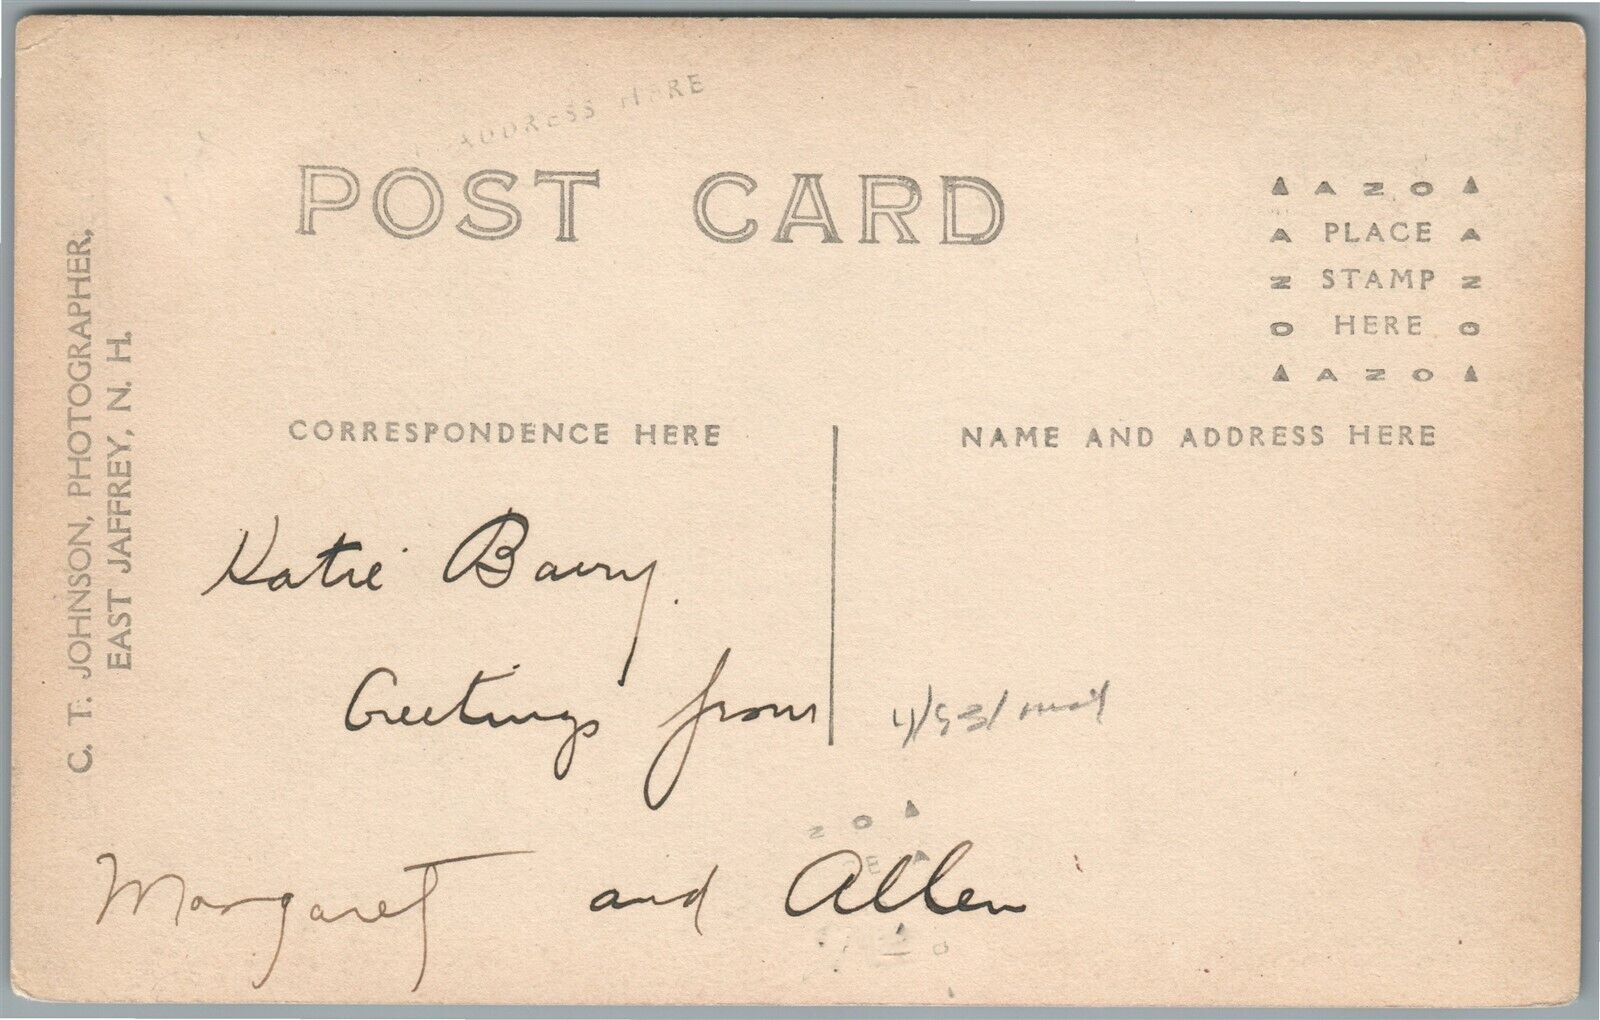 ADDRESS HERE
POST CARD
▲ A Z O ▲
A PLACE A
Z STAMP Z
O HERE O
▲ A Z O ▲
C. T. JOHNSON, PHOTOGRAPHER,
EAST JAFFREY, N. H.
CORRESPONDENCE HERE
NAME AND ADDRESS HERE
Katie Barry.
Greetings from
Margaret and Allen